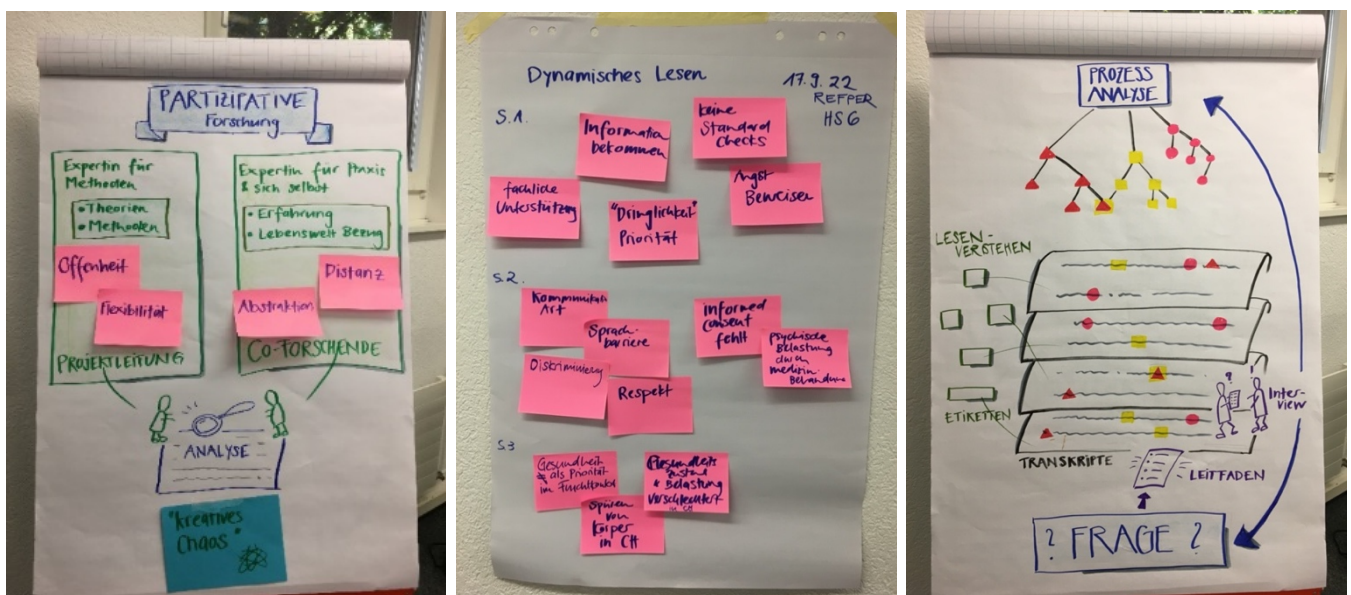 PARTIZIPATIVE
Forschung
Expertin für
Methoden
• Theorien
• Methoden
Offenheit
Flexibilität
PROJEKTLEITUNG
Expertin für Praxis
& sich selbst
• Erfahrung
• Lebenswelt Bezug
Distanz
Abstraktion
CO-FORSCHENDE
ANALYSE
"kreatives
Chaos"
Dynamisches Lesen
17.9.22
REFPER
HS G
S.1.
Information
bekommen
keine
Standard
Checks
fachliche
Unterstützg
"Dringlichkeit"
Priorität
Angst
Beweisen
S.2.
Kommunikati
Art
Sprach-
barriere
Diskriminierg
Respekt
informed
consent
fehlt
psychische
Belastung
durch
medizin.
Behandlung
S.3
Gesundheit
als Priorität
im
Gesundheits
zustand
& Belastung
verschlechtert
in CH
Spüren
von
Körper
in CH
PROZESS
ANALYSE
LESEN-
VERSTEHEN
ETIKETTEN
TRANSKRIPTE
?
!
Inter-
view
LEITFADEN
? FRAGE ?